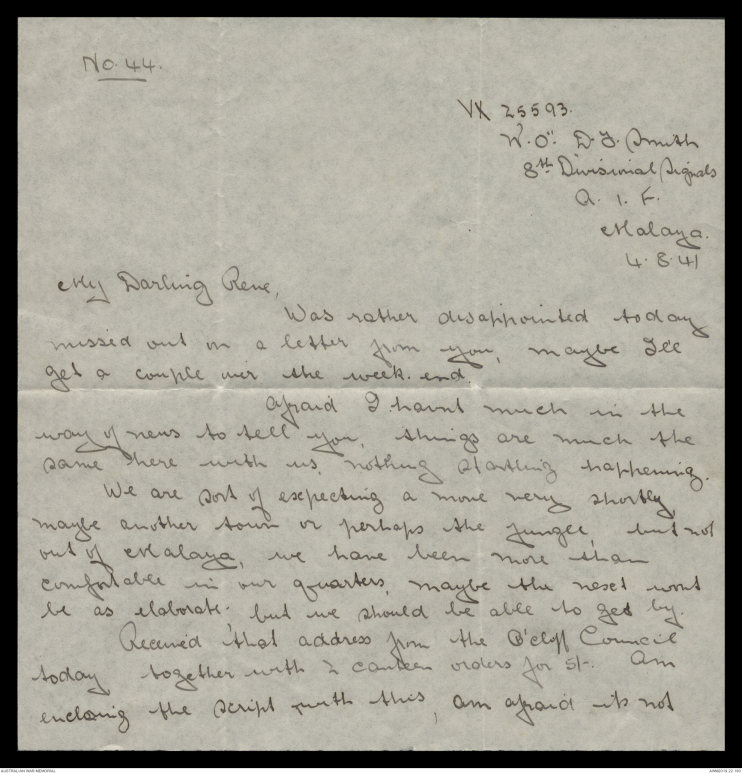 No. 44.
VX 25593.
W.O". D.F. Smith
8th Divisional Signals
A. I. F.
Malaya.
4. 8. 41
My Darling Rene,
Was rather disappointed today
missed out on a letter from you, maybe I'll
get a couple over the week. end.
Afraid I havnt much in the
way of news to tell you, things are much the
same here with us, nothing startling happening.
We are sort of expecting a move very shortly,
maybe another town or perhaps the jungle, but not
out of Malaya, we have been more than
comfortable in our quarters, maybe the next wont
be as elaborate, but we should be able to get by.
Received that address from the B'cliff Council
today together with 2 canteen orders for 5/-. Am
enclosing the script with this, am afraid its not
AUSTRALIAN WAR MEMORIAL